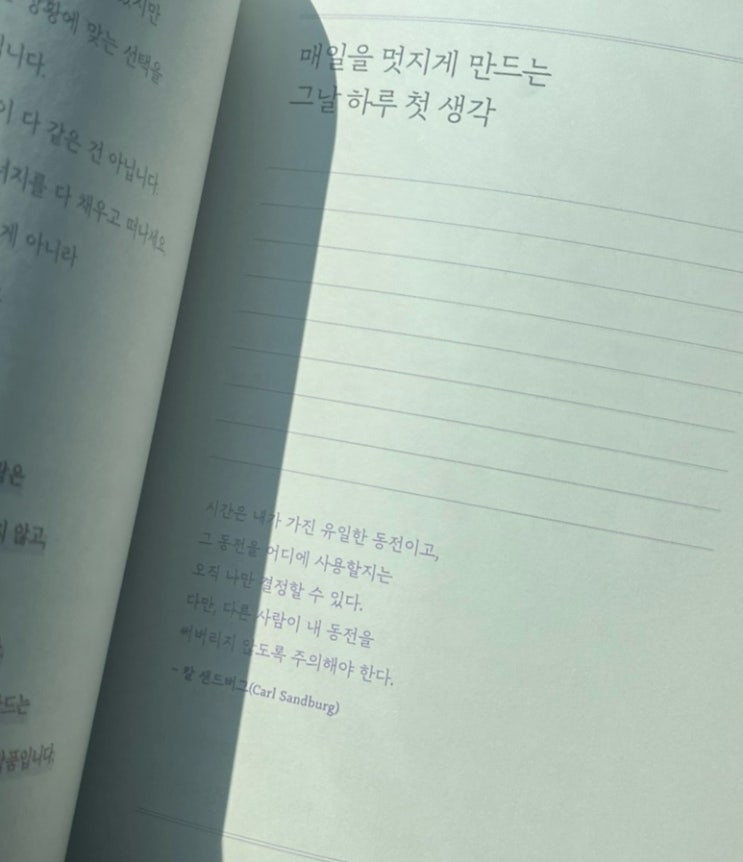 상황에 맞는 선택을
니다.
이 다 같은 건 아닙니다.
너지를 다 채우고 떠나세요
게 아니라
않고
드는
품입니다.
매일을 멋지게 만드는
그날 하루 첫 생각
시간은 내가 가진 유일한 동전이고,
그 동전을 어디에 사용할지는
오직 나만 결정할 수 있다.
다만, 다른 사람이 내 동전을
써버리지 않도록 주의해야 한다.
- 칼 샌드버그(Carl Sandburg)